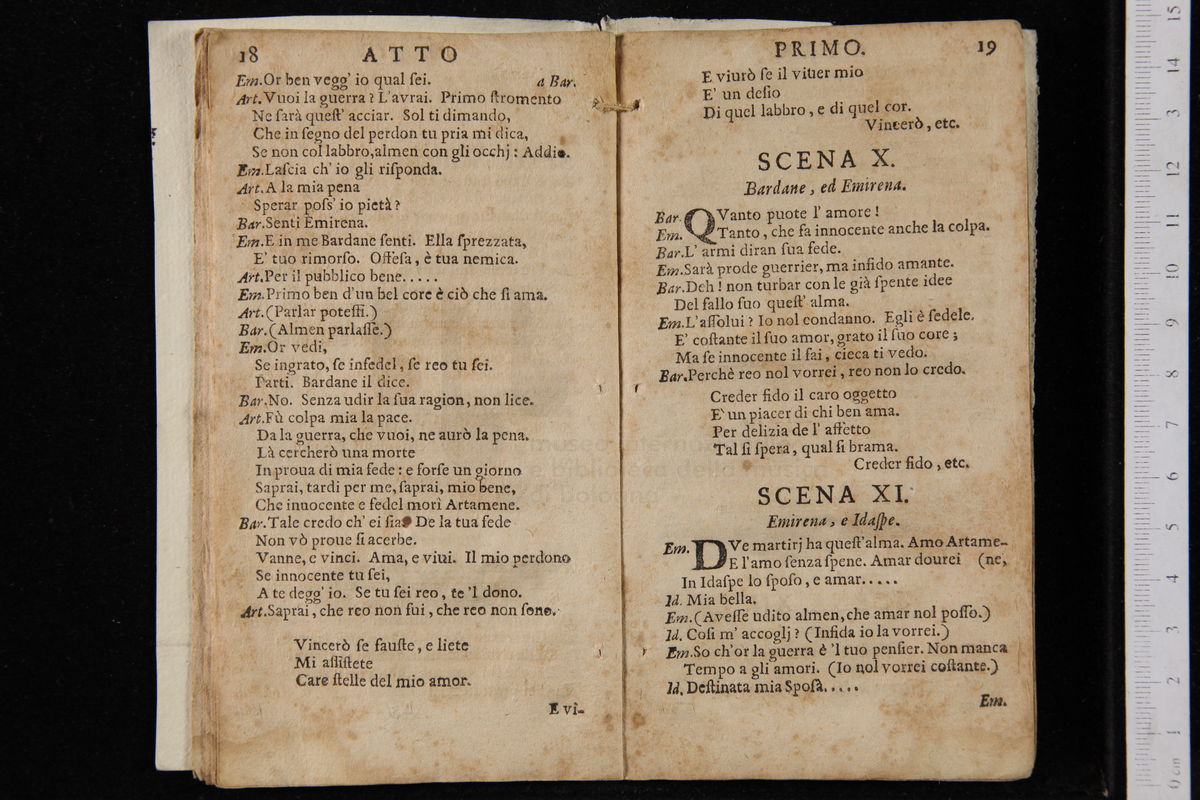 18 ATTO
Em.Or ben vegg' io qual ſei. a Bar.
Art.Vuoi la guerra ? L'avrai. Primo ſtromento
Ne farà queſt' acciar. Sol ti dimando,
Che in ſegno del perdon tu pria mi dica,
Se non col labbro,almen con gli occhj : Addio.
Em.Laſcia ch' io gli riſponda.
Art.A la mia pena
Sperar poſs' io pietà ?
Bar.Senti Emirena.
Em.E in me Bardane ſenti. Ella ſprezzata,
E' tuo rimorſo. Offeſa , è tua nemica.
Art.Per il pubblico bene.....
Em.Primo ben d'un bel core è ciò che ſi ama.
Art.(Parlar poteſſi.)
Bar.(Almen parlaſſe.)
Em.Or vedi,
Se ingrato, ſe infedel , ſe reo tu ſei.
Parti. Bardane il dice.
Bar.No. Senza udir la ſua ragion, non lice.
Art.Fù colpa mia la pace.
Da la guerra, che vuoi, ne aurò la pena.
Là cercherò una morte
In proua di mia fede : e forſe un giorno
Saprai, tardi per me, ſaprai, mio bene,
Che innocente e fedel morì Artamene.
Bar.Tale credo ch' ei ſia. De la tua fede
Non vò proue ſi acerbe.
Vanne, e vinci. Ama, e viui. Il mio perdono
Se innocente tu ſei,
A te degg' io. Se tu ſei reo , te 'l dono.
Art.Saprai , che reo non fui , che reo non ſono.
Vincerò ſe fauſte , e liete
Mi aſſiſtete
Care ſtelle del mio amor.
E vi-
PRIMO. 19
E viurò ſe il viver mio
E' un deſio
Di quel labbro , e di quel cor.
Vincerò , etc.
SCENA X.
Bardane , ed Emirena.
Bar. QVanto puote l' amore !
Em. Tanto , che fa innocente anche la colpa.
Bar.L' armi diran ſua fede.
Em.Sarà prode guerrier, ma infido amante.
Bar.Deh ! non turbar con le già ſpente idee
Del fallo ſuo queſt' alma.
Em.L'aſſolui ? Io nol condanno. Egli è fedele.
E' coſtante il ſuo amor, grato il ſuo core ;
Ma ſe innocente il fai , cieca ti vedo.
Bar.Perchè reo nol vorrei , reo non lo credo.
Creder fido il caro oggetto
E' un piacer di chi ben ama.
Per delizia de l' affetto
Tal ſi ſpera , qual ſi brama.
Creder fido , etc.
SCENA XI.
Emirena , e Idaſpe.
Em. DVe martirj ha queſt'alma. Amo Artame-
E l'amo ſenza ſpene. Amar dourei (ne,
In Idaſpe lo ſpoſo , e amar.....
Id. Mia bella.
Em.(Aveſſe udito almen, che amar nol poſſo.)
Id. Coſi m' accoglj ? (Infida io la vorrei.)
Em.So ch'or la guerra è 'l tuo penſier. Non manca
Tempo a gli amori. (Io nol vorrei coſtante.)
Id. Deſtinata mia Spoſa.....
Em.